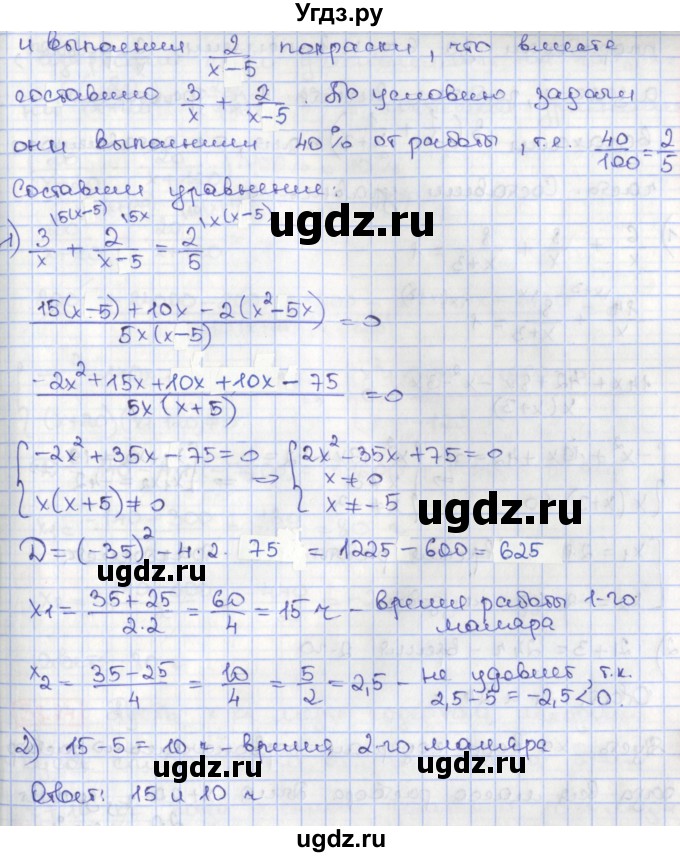 Угдз.ру
и выполнил 2/(x-5) покраски, что вместе
составило 3/x + 2/(x-5). По условию задачи
они выполнили 40% от работы, т.е. 40/100 = 2/5
Составим уравнение:
1) 3/x |5(x-5) + 2/(x-5) |5x = 2/5 |x(x-5)
ugdz.ru
(15(x-5)+10x-2(x²-5x))/(5x(x-5)) = 0
(-2x²+15x+10x+10x-75)/(5x(x+5)) = 0
{-2x²+35x-75=0 ⇒ {2x²-35x+75=0
x(x+5)≠0 x≠0
x≠-5
ugdz.ru
D=(-35)²-4·2·75 = 1225-600=625
ugdz.ru
x1 = (35+25)/(2·2) = 60/4 = 15 ч - время работы 1-го
маляра
x2 = (35-25)/4 = 10/4 = 5/2 = 2,5 - не удовлет, т.к.
2,5-5=-2,5<0.
ugdz.ru
2) 15-5=10 ч - время 2-го маляра
ugdz.ru
ugdz.ru
Ответ: 15 и 10 ч
ugdz.ru